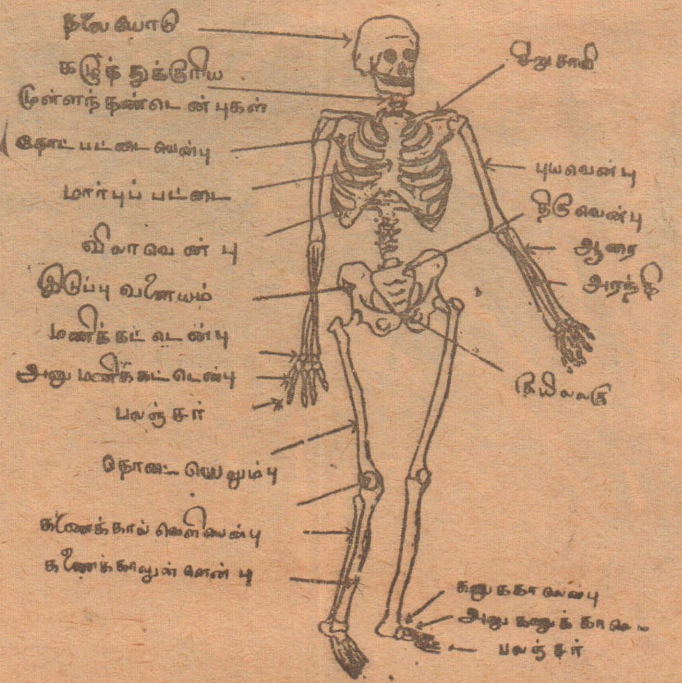 தலையோடு
கழுத்துக்குரிய
முள்ளந்தண்டென்புகள்
தோட்பட்டையென்பு
மார்புப் பட்டை
விலாவென்பு
இடுப்பு வளையம்
மணிக்கட்டென்பு
அனுமணிக்கட்டென்பு
பலஞ்சர்
தொடையெலும்பு
கணைக்கால் வெளியென்பு
கணைக்காலுள்ளென்பு
புயவென்பு
திருவென்பு
ஆரை
அரந்தி
குயிலலகு
கணுக்காலென்பு
அனுகணுக்கா
பலஞ்சர்